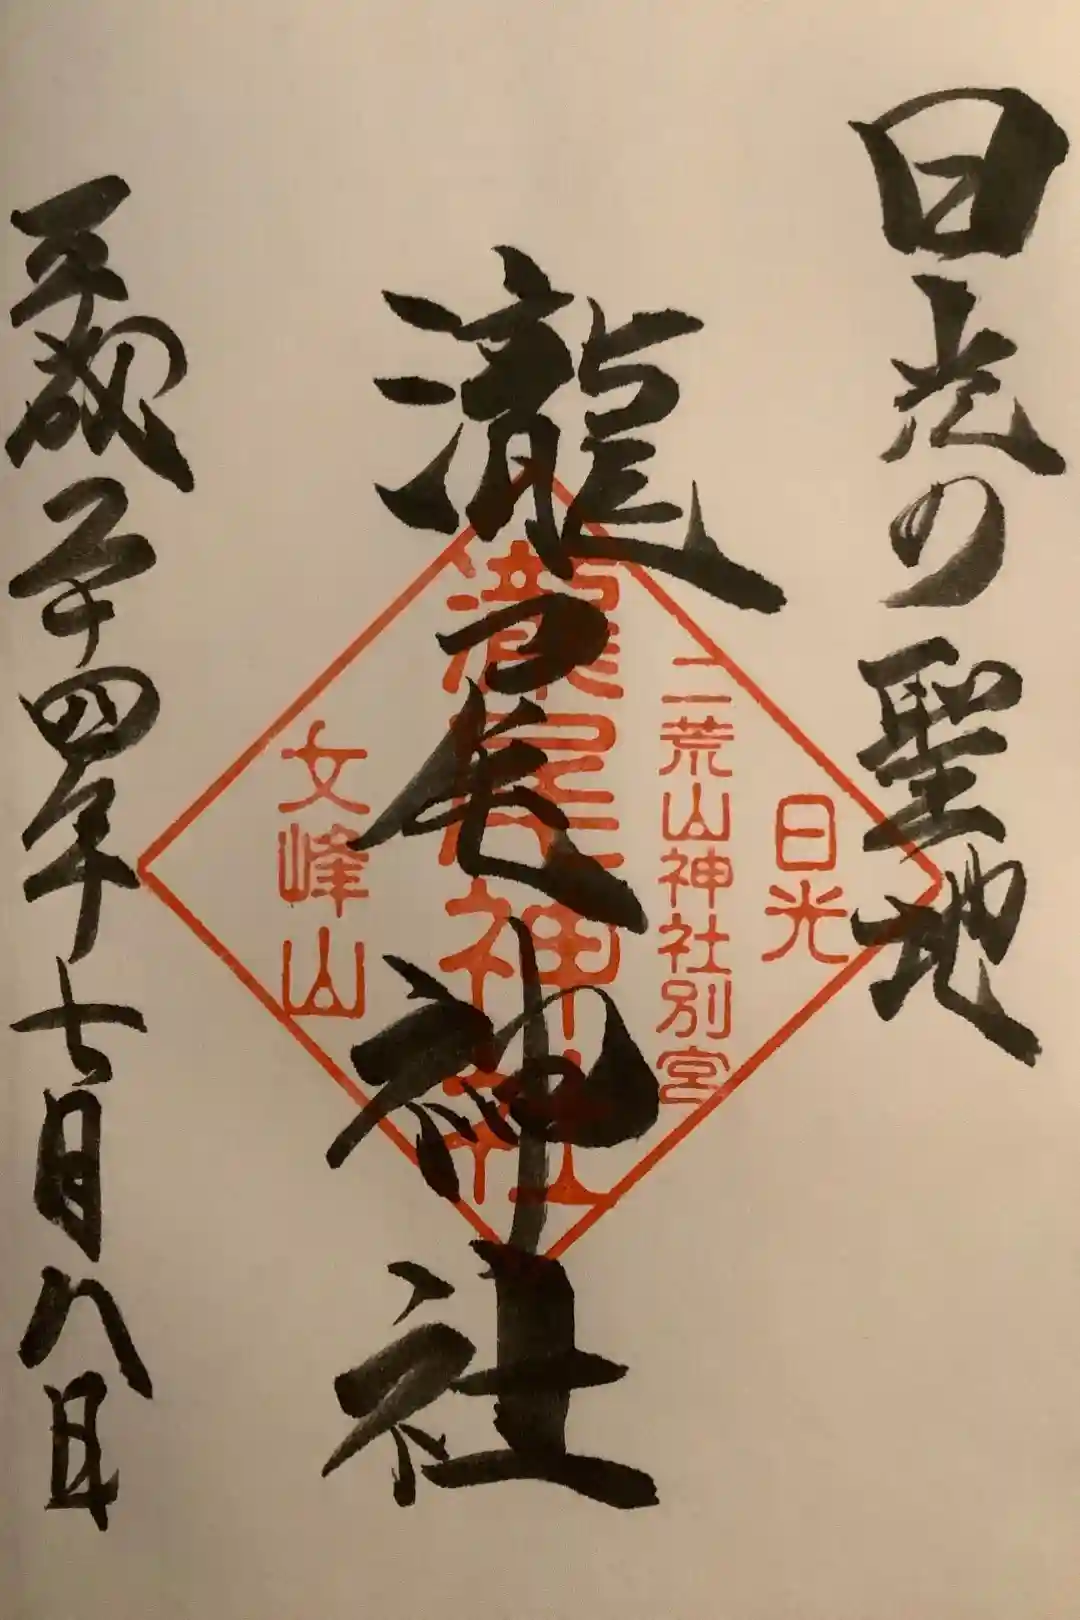 日光の聖地
瀧尾神社
平成二十四年七月八日
日光
二荒山神社別宮
瀧尾神社
文峰山